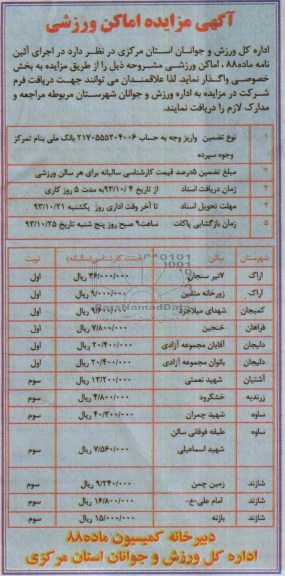 آگهی مزایده اماکن ورزشی
اداره کل ورزش و جوانان استان مرکزی در نظر دارد در اجرای آئین
نامه ماده۸۸ ، اماکن ورزشی مشروحه ذیل را از طریق مزایده به بخش
خصوصی واگذار نماید. لذا علاقمندان می توانند جهت دریافت فرم
شرکت در مزایده به اداره ورزش و جوانان شهرستان مربوطه مراجعه و
مدارک لازم را دریافت نمایند.
۱ نوع تضمین واریز وجه به حساب ۲۱۷۰۵۵۵۲۰۴۰۰۶ بانک ملی بنام تمرکز
وجوه سپرده
۲ مبلغ تضمین ۵درصد قیمت کارشناسی سالیانه برای هر سالن ورزشی
۳ زمان دریافت اسناد از تاریخ ۹۳/۱۰/۴ به مدت ۵ روز کاری
۴ مهلت تحویل اسناد تا آخر وقت اداری روز یکشنبه ۹۳/۱۰/۲۱
۵ زمان بازگشایی پاکات ساعت۹ صبح روز پنج شنبه تاریخ ۹۳/۱۰/۲۵
شهرستان سالن قیمت کارشناسی(سالیانه) نوبت
اراک ۷تیر سنجان ۳۶/۰۰۰/۰۰۰ ریال اول
اراک زورخانه متقین ۹/۰۰۰/۰۰۰ ریال اول
کمیجان شهدای میلاجرد ۹/۶۰۰/۰۰۰ ریال اول
فراهان خنجین ۷/۸۰۰/۰۰۰ ریال اول
دلیجان آقایان مجموعه آزادی ۲۰/۴۰۰/۰۰۰ ریال اول
دلیجان بانوان مجموعه آزادی ۲۰/۴۰۰/۰۰۰ ریال اول
آشتیان شهید نعمتی ۱۳/۲۰۰/۰۰۰ ریال سوم
زرندیه خشکرود ۴/۸۰۰/۰۰۰ ریال سوم
ساوه شهید چمران ۴۰/۲۰۰/۰۰۰ ریال سوم
ساوه طبقه فوقانی سالن
شهید اسماعیلی ۷/۵۶۰/۰۰۰ ریال سوم
شازند زمین چمن ۹/۲۴۰/۰۰۰ ریال سوم
شازند امام علی-ع- ۱۶/۸۰۰/۰۰۰ ریال سوم
شازند بازنه ۱۵/۰۰۰/۰۰۰ ریال سوم
دبیرخانه کمیسیون ماده۸۸
اداره کل ورزش و جوانان استان مرکزی